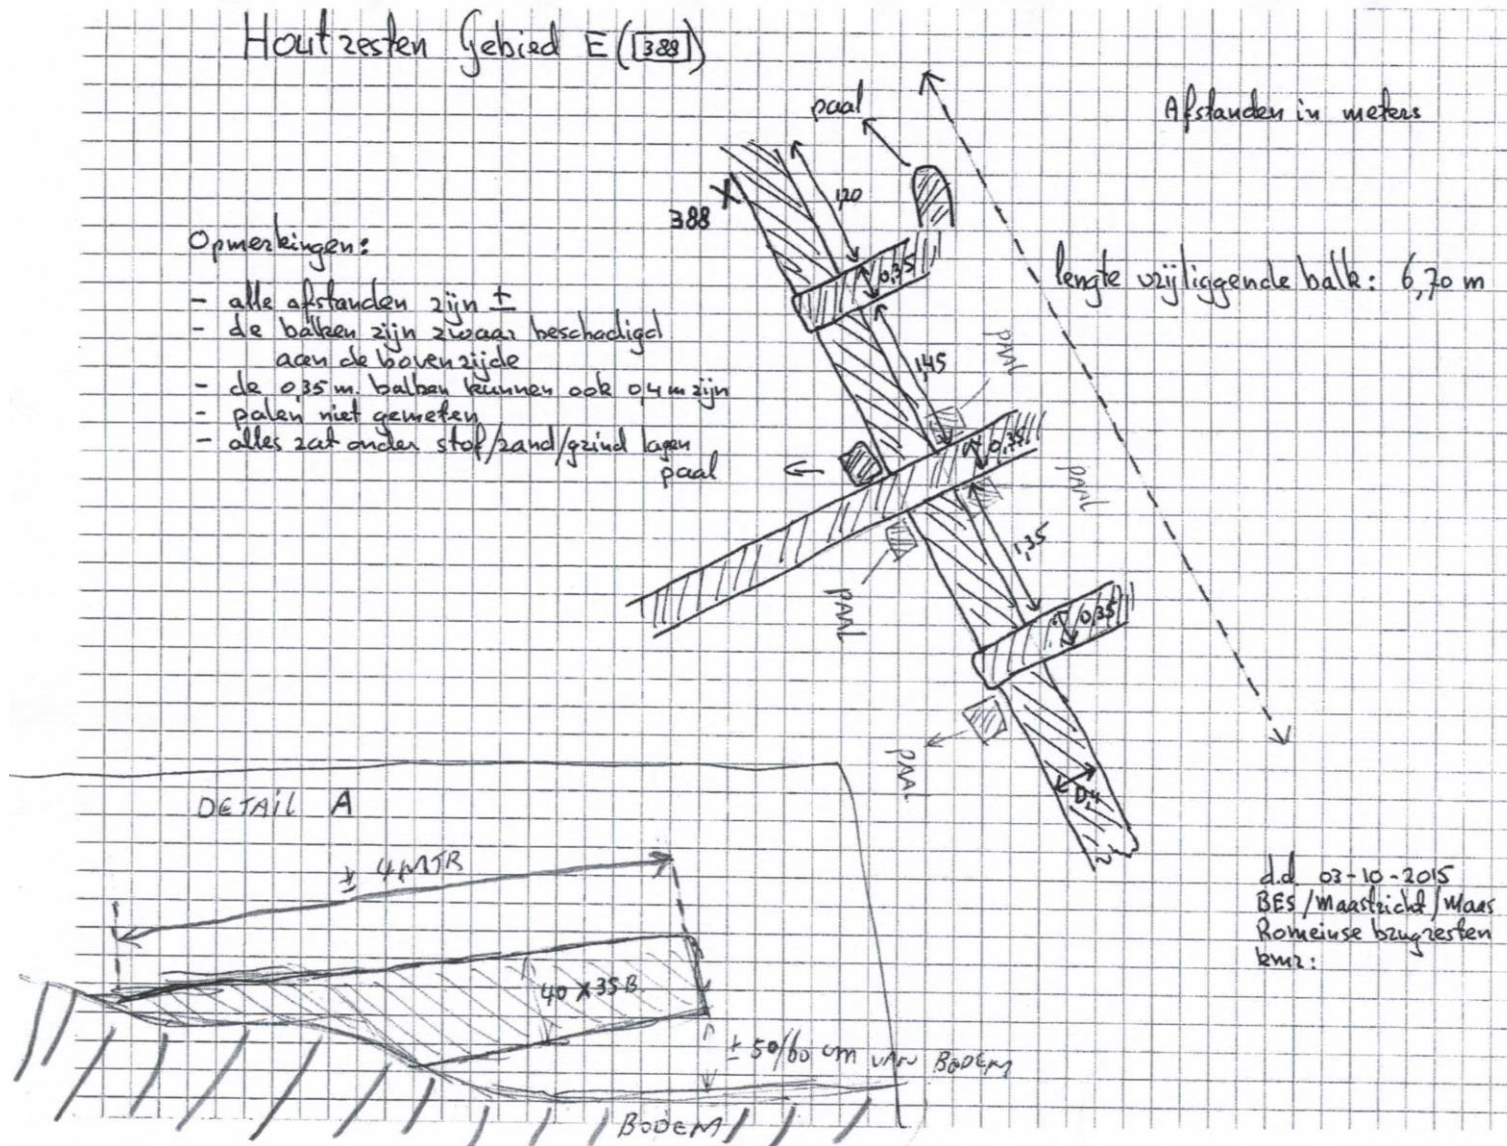 Houtresten Gebied E ([388])
paal
Afstanden in meters
388
1,20
0,35
lengte vrijliggende balk: 6,70 m
Opmerkingen:
- alle afstanden zijn ±
- de balken zijn zwaar beschadigd
aan de bovenzijde
- de 0,35 m. balken kunnen ook 0,4 m zijn
- palen niet gemeten
- alles zat onder stof/zand/grind lagen
1,45
PAAL
paal
0,35
PAAL
1,35
PAAL
0,35
PAAL
0,4
DETAIL A
± 4 MTR
40 X 35 B.
± 50/60 cm VAN BODEM
BODEM
d.d. 03-10-2015
BES/Maastricht/Maas
Romeinse brugresten
kmr: